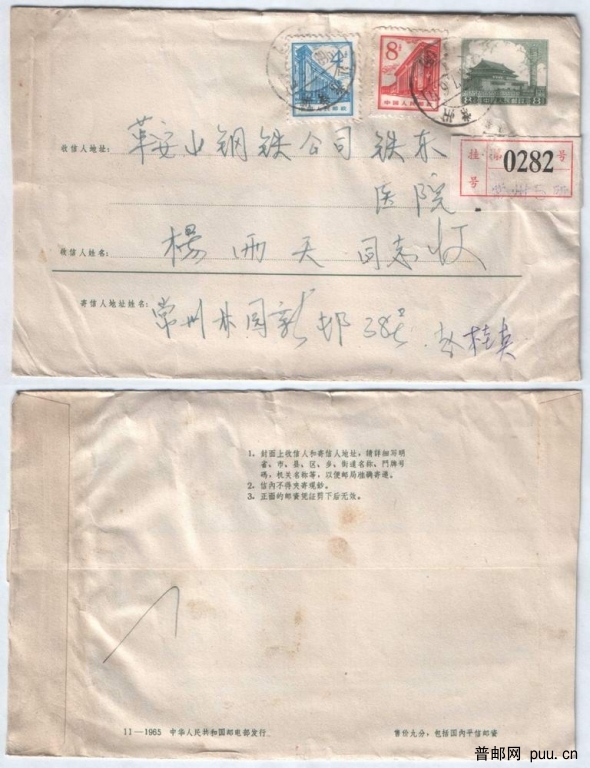 4分
中国人民邮政
8分
中国人民邮政
8 中华人民邮政 8
常州
挂号
0282
号
收信人地址:
鞍山钢铁公司 铁东
医院
收信人姓名:
杨雨天 同志收
寄信人地址姓名:
常州木园新邨38号
桂英
1、封面上收信人和寄信人地址,请详细写明
省、市、县、区、乡、街道名称、門牌号
碼,机关名称等,以便邮局准确寄递。
2、信内不得夹寄现鈔。
3、正面的邮资凭証剪下后无效。
11—1965 中华人民共和国邮电部发行。
售价九分,包括国内平信邮资
普邮网 puu.cn